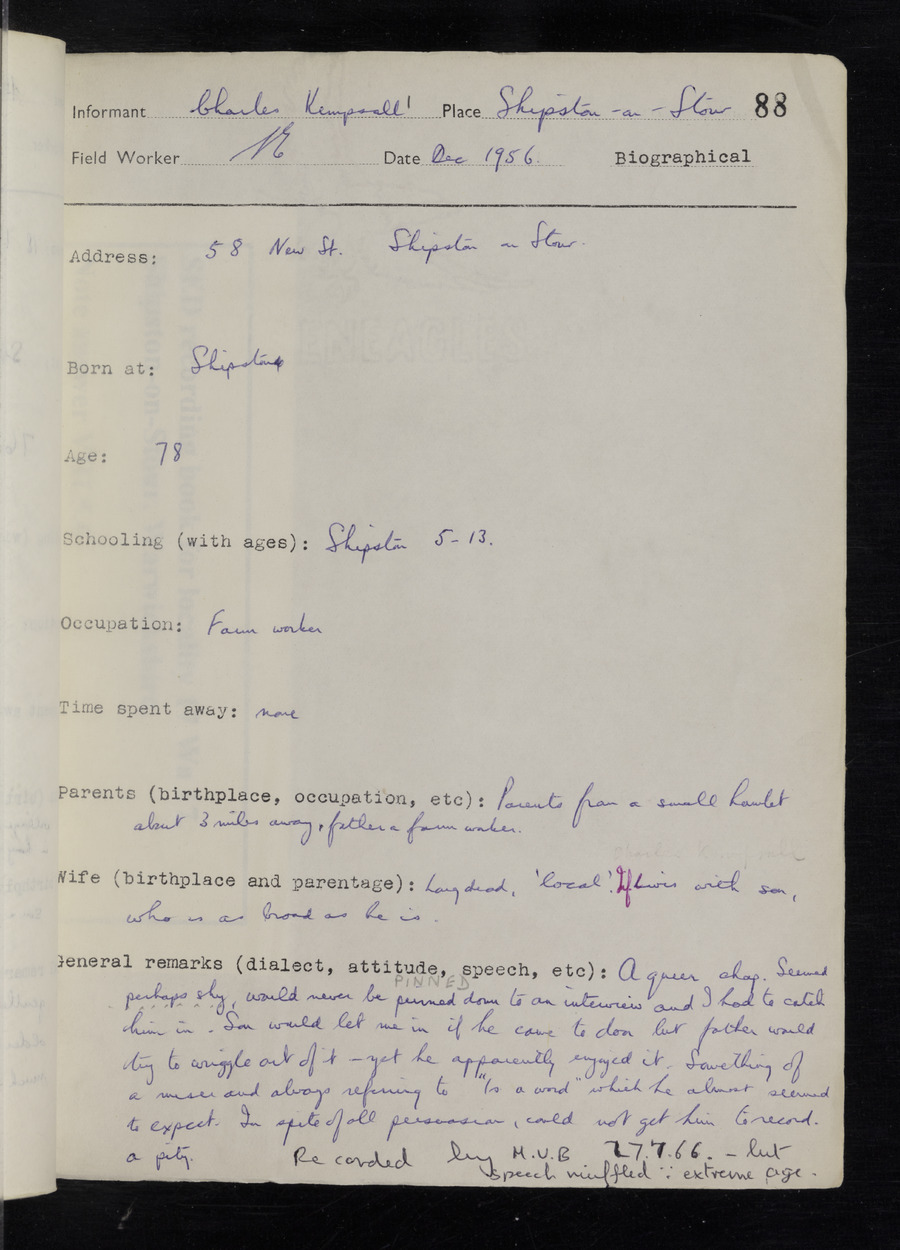 Informant Charles Kempsall Place Shipston-on-Stour 88
Field Worker Date Dec 1956. Biographical
Address: 58 New St. Shipston on Stour.
Born at: Shipston
Age: 78
Schooling (with ages): Shipston 5-13.
Occupation: Farm worker
Time spent away: none
Parents (birthplace, occupation, etc): Parents from a small hamlet
about 3 miles away, father a farm worker.
Wife (birthplace and parentage): Long dead, 'local'. If Lives with son,
who is as broad as he is.
General remarks (dialect, attitude, speech, etc): A queer chap. Seemed
PINNED
perhaps shy, would never be pinned down to an interview and I had to catch
him in. Son would let me in if he came to door but father would
try to wriggle out of it – yet he apparently enjoyed it. Something of
a miser and always referring to "1s a word" which he almost seemed
to expect. In spite of all persuasion, could not get him to record.
a pity. Recorded by M.V.B 27.7.66. – but
speech muffled ∵ extreme age.